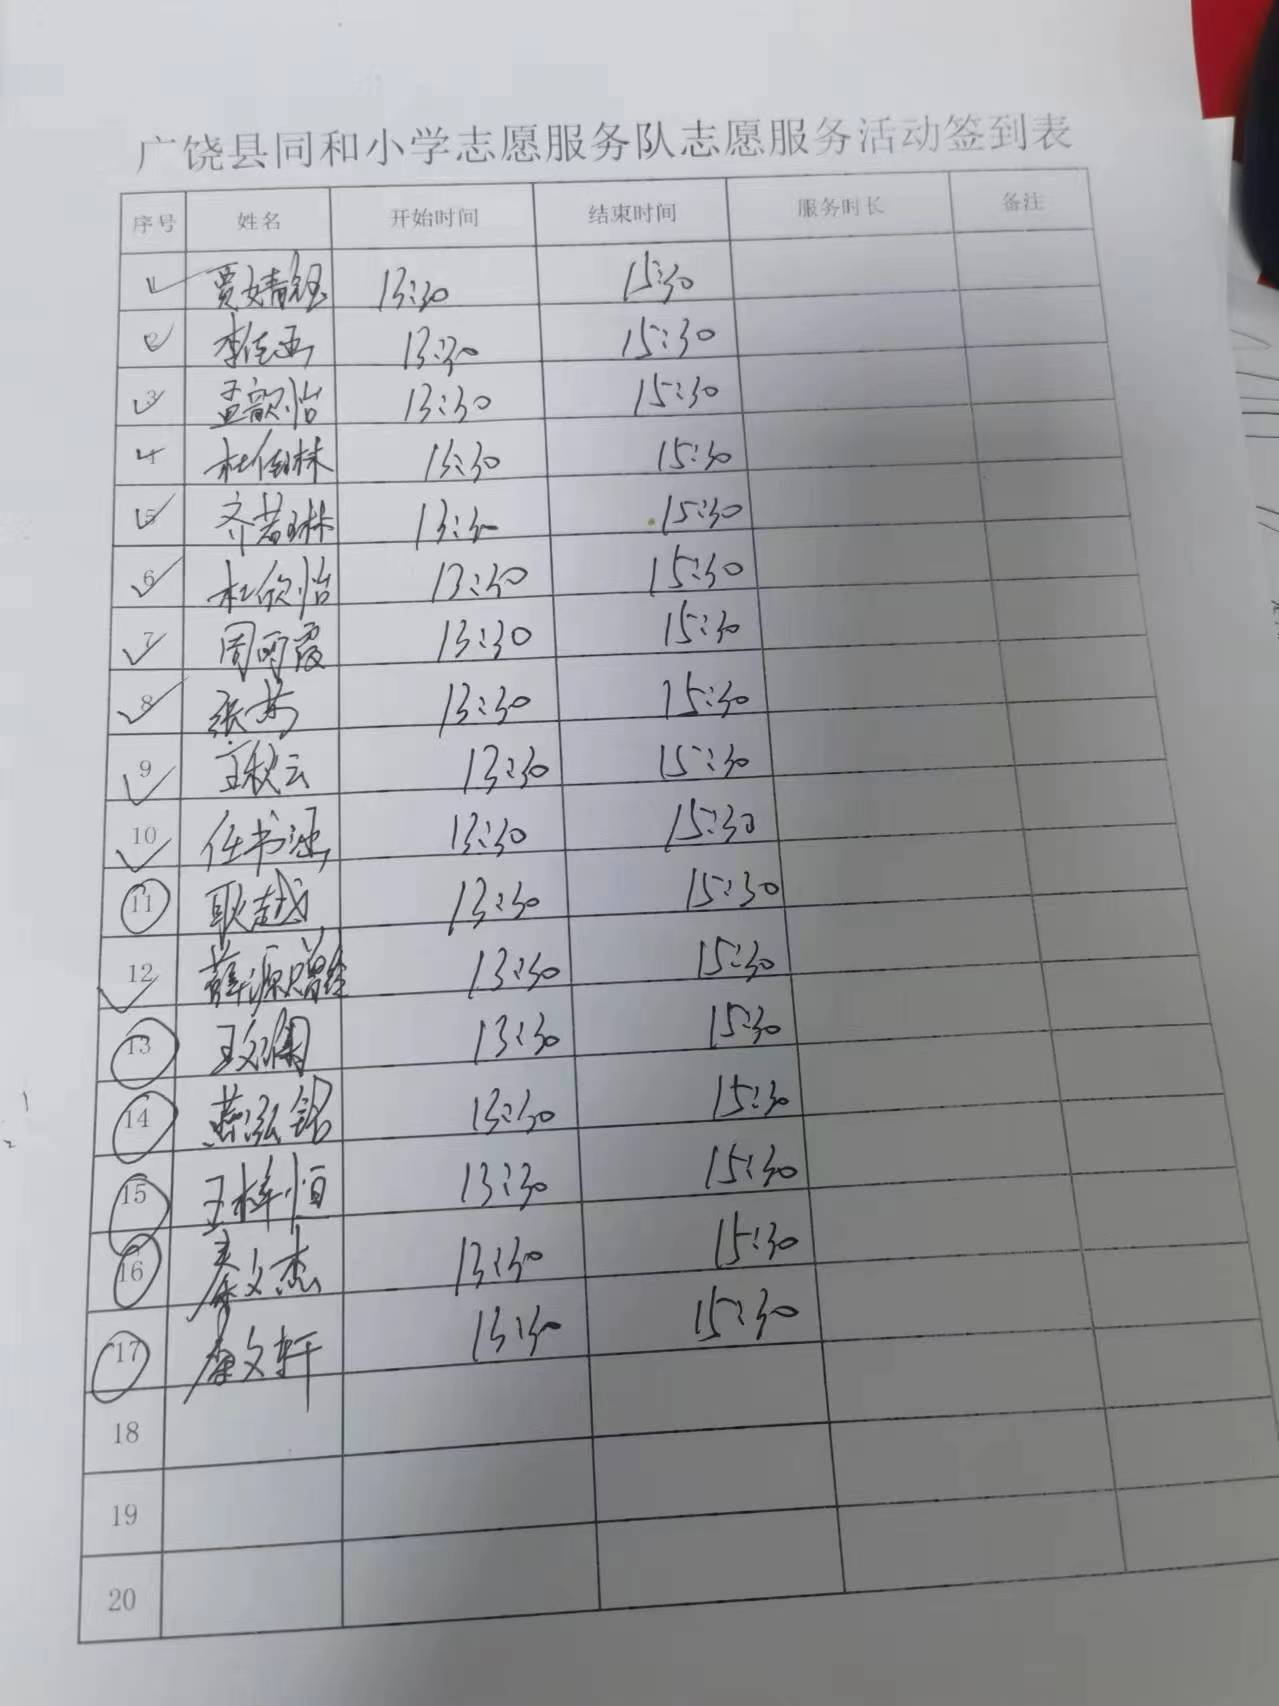 广饶县同和小学志愿服务队志愿服务活动签到表
序号 姓名 开始时间 结束时间 服务时长 备注
1 贾婧钰 13:30 15:30
2 13:30 15:30
3 孟歆怡 13:30 15:30
4 13:30 15:30
5 齐若琳 13:30 15:30
6 杜欣怡 13:30 15:30
7 周雨霞 13:30 15:30
8 13:30 15:30
9 13:30 15:30
10 任书涵 13:30 15:30
11 耿越 13:30 15:30
12 薛源 13:30 15:30
13 13:30 15:30
14 燕泓铭 13:30 15:30
15 王梓恒 13:30 15:30
16 秦文杰 13:30 15:30
17 文轩 13:30 15:30
18
19
20